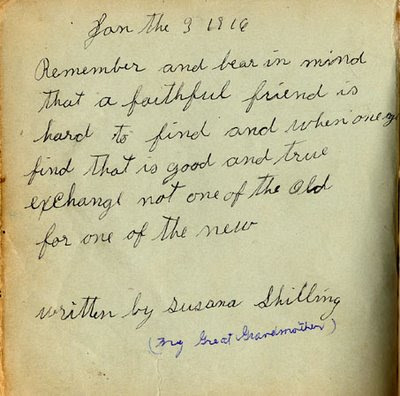 Jan the 9 1916
Remember and bear in mind
that a faithful friend is
hard to find and when one
find that is good and true
exchange not one of the old
for one of the new
written by Susana Shilling
(my Great Grandmother)